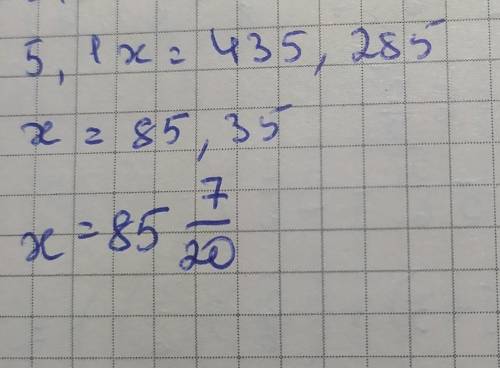 5,1x = 435,285
x = 85,35
x = 85 7/20